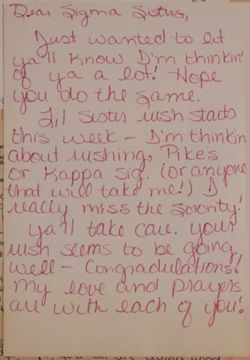 Dear Sigma Sisters,
Just wanted to let
ya'll know I'm thinkin'
of ya a lot! Hope
you do the same.
Lil Sister rush starts
this week - I'm thinkin
about rushing, Pikes
or Kappa Sig. (or anyone
that will take me!) I
really miss the sorority!
ya'll take care. your
rush seems to be going
well - Congradulations!
my love and prayers
are with each of you.